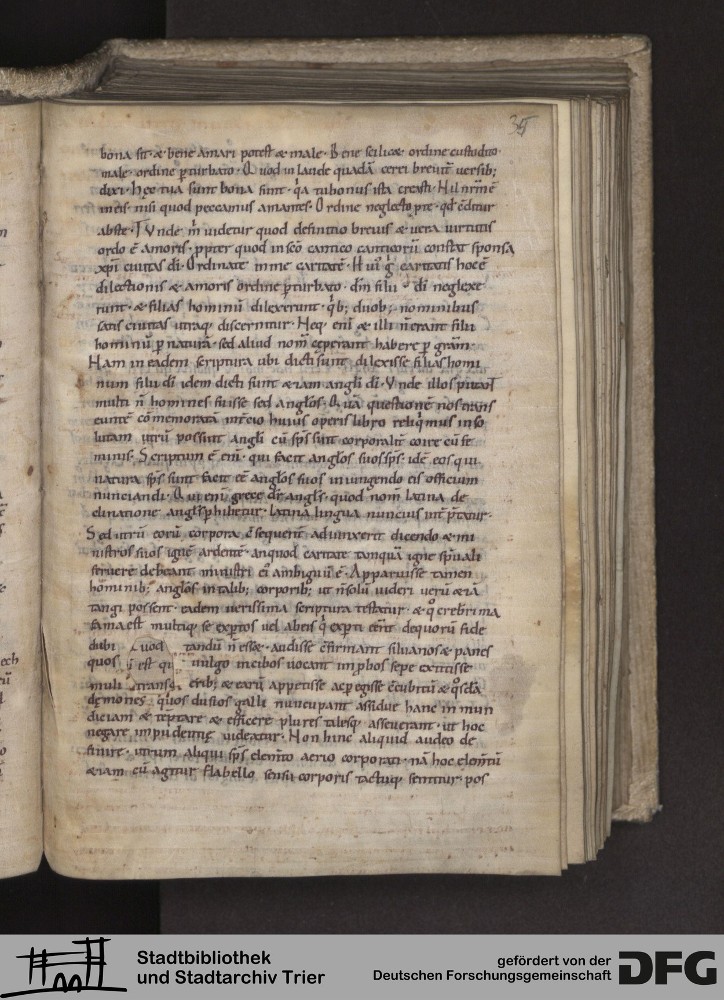 35
bona sit · & bene amari potest & male · Bene scilicæ ordine custodito ·
male · ordine p̄turbato · Quod in laude quadā cerei breuit̄ versib;
dixi · Hęc tua sunt bona sunt · q̓a tu bonus ista creasti · Nil nr̄m ē
in eis · nisi quod peccamus amantes · Ordine neglecto p te · qđ c̄ditur
abs te · Vnde m̓ uidetur quod definitio breuis & uera uirtutis
ordo ē amoris · ppter quod in sc̄o cantico canticorū cantat sponsa
xp̄i ciuitas dī · Ordinate in me caritatē · Hui ḡ caritatis hoc ē
dilectionis & amoris ordine p̄turbato · dm̄ filii dī neglexe
runt · & filias hominū dilexerunt · q̓b; duob; nominibus
satis ciuitas utraq; discernitur · Neq; eni & illi n̄ erant filii
hominū p naturā · sed aliud nom̄ ceperant habere p grām ·
Nam in eadem scriptura ubi dicti sunt dilexisse filias homi
num filii dī idem dicti sunt &iam angli dī · Vnde illos putant
multi n̄ homines fuisse sed anglos · Quā questionē nos trans
eunter cōmemoratā in t̄cio huius operis libro reliq̓mus inso
lutam utrū possint angli cū sp̄s sint corporalit̄ coire cū fe
minis · Scriptum ē eni · qui facit anglos suos sp̄s · id ē eos qui
natura sp̄s sunt facit ēē anglos suos iniungendo eis officium
nunciandi · Qui eni grece dr̄ angls · quod nom̄ latina de
clinatione angls phibetur · latina lingua nuncius int̄p̄tatur ·
Sed utrū eorū corpora c̄sequent̄ adiunxerit dicendo & mi
nistros suos ignē ardentē · an quod caritate tanquā igne sp̄uali
feruere debeant ministri ei ambiguū ē · Apparuisse tamen
hominib; anglos in talib; corporib; ut n̄ solū uideri uerū &iā
tangi possent · eadem uerissima scriptura testatur · & qō creberrima
fama est multiq; se exp̄tos uel ab eis q̓ exp̄ti eēnt de quorū fide
dubi uod tandū n̄ esse · audisse c̄firmant siluanos & panes
quos ē est qu uulgo incibos uocant inp̄bos sepe extitisse
muli transq; erib; & earū appetisse ac pegisse c̄cubitū & qōsdā
dęmones quos dusios galli nuncupant assidue hanc inmun
diciam & temptare & efficere plures talesq; asseuerant · ut hoc
negare impudentię uideatur · Non hinc aliquid audeo de
finire · utrum aliqui sp̄s elem̄to aerio corporati · nā hoc elem̄tū
&iam cū agitur flabello sensu corporis tactuq; sentitur · pos
Stadtbibliothek
und Stadtarchiv Trier
gefördert von der
Deutschen Forschungsgemeinschaft
DFG